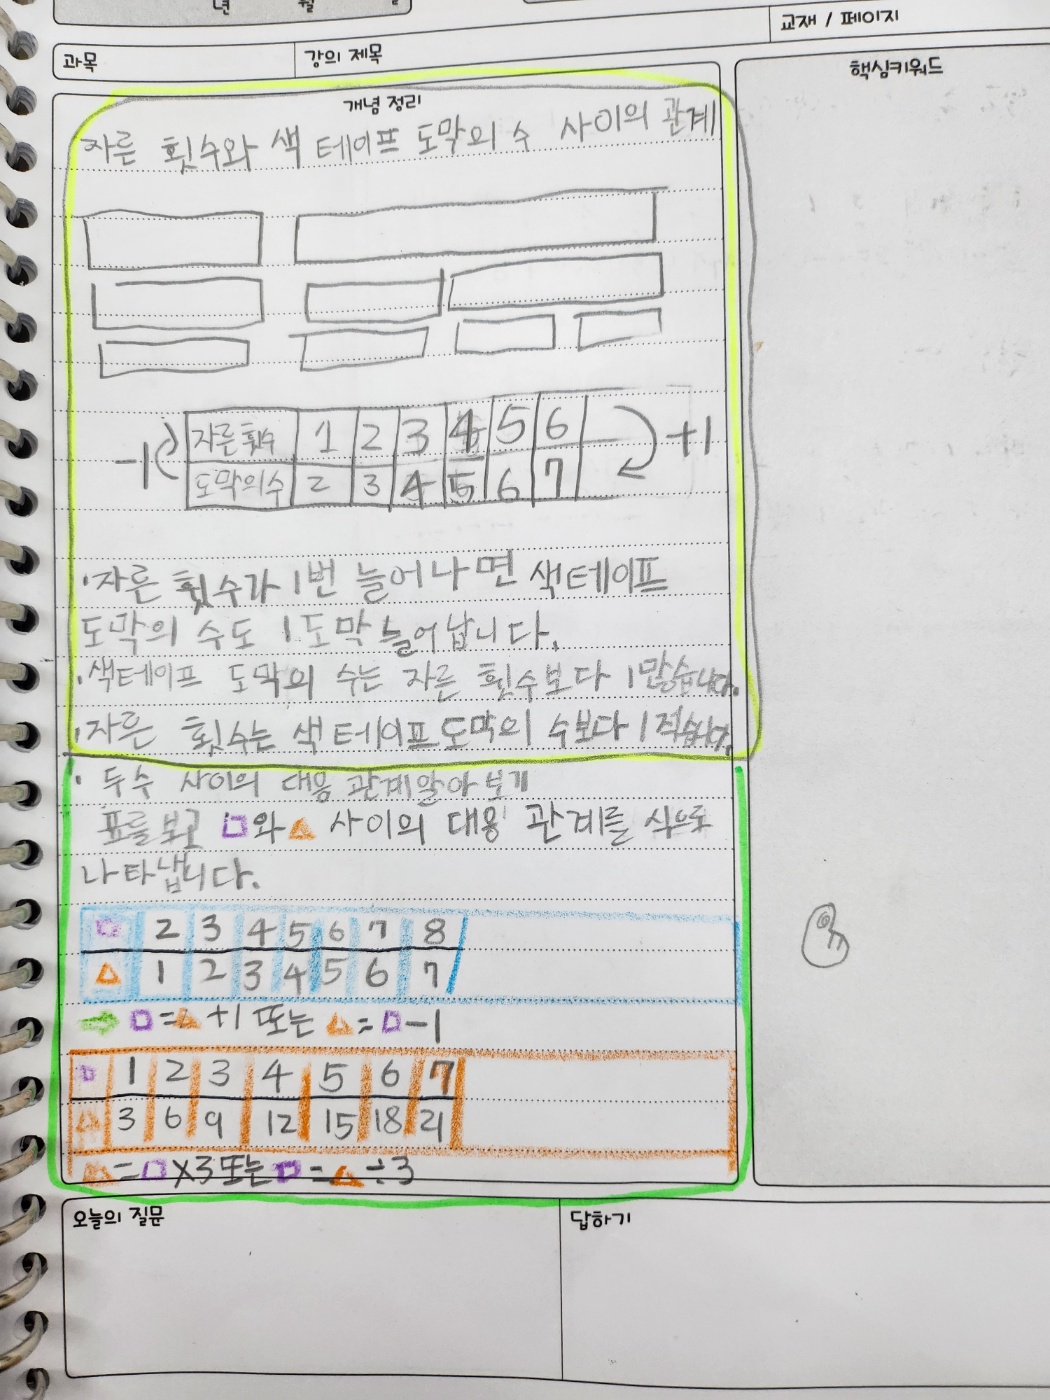 년 월
교재 / 페이지
과목
강의 제목
핵심키워드
개념 정리
자른 횟수와 색 테이프 도막의 수 사이의 관계
자른 횟수 1 2 3 4 5 6
도막의 수 2 3 4 5 6 7
-1
+1
·자른 횟수가 1번 늘어나면 색테이프
도막의 수도 1도막 늘어납니다.
·색테이프 도막의 수는 자른 횟수보다 1많습니다.
·자른 횟수는 색 테이프 도막의 수보다 1적습니다.
· 두 수 사이의 대응 관계알아보기
표를 보고 □와 △ 사이의 대응 관계를 식으로
나타냅니다.
□ 2 3 4 5 6 7 8
△ 1 2 3 4 5 6 7
⇒ □=△+1 또는 △=□-1
□ 1 2 3 4 5 6 7
△ 3 6 9 12 15 18 21
△=□×3 또는 □=△÷3
오늘의 질문
답하기